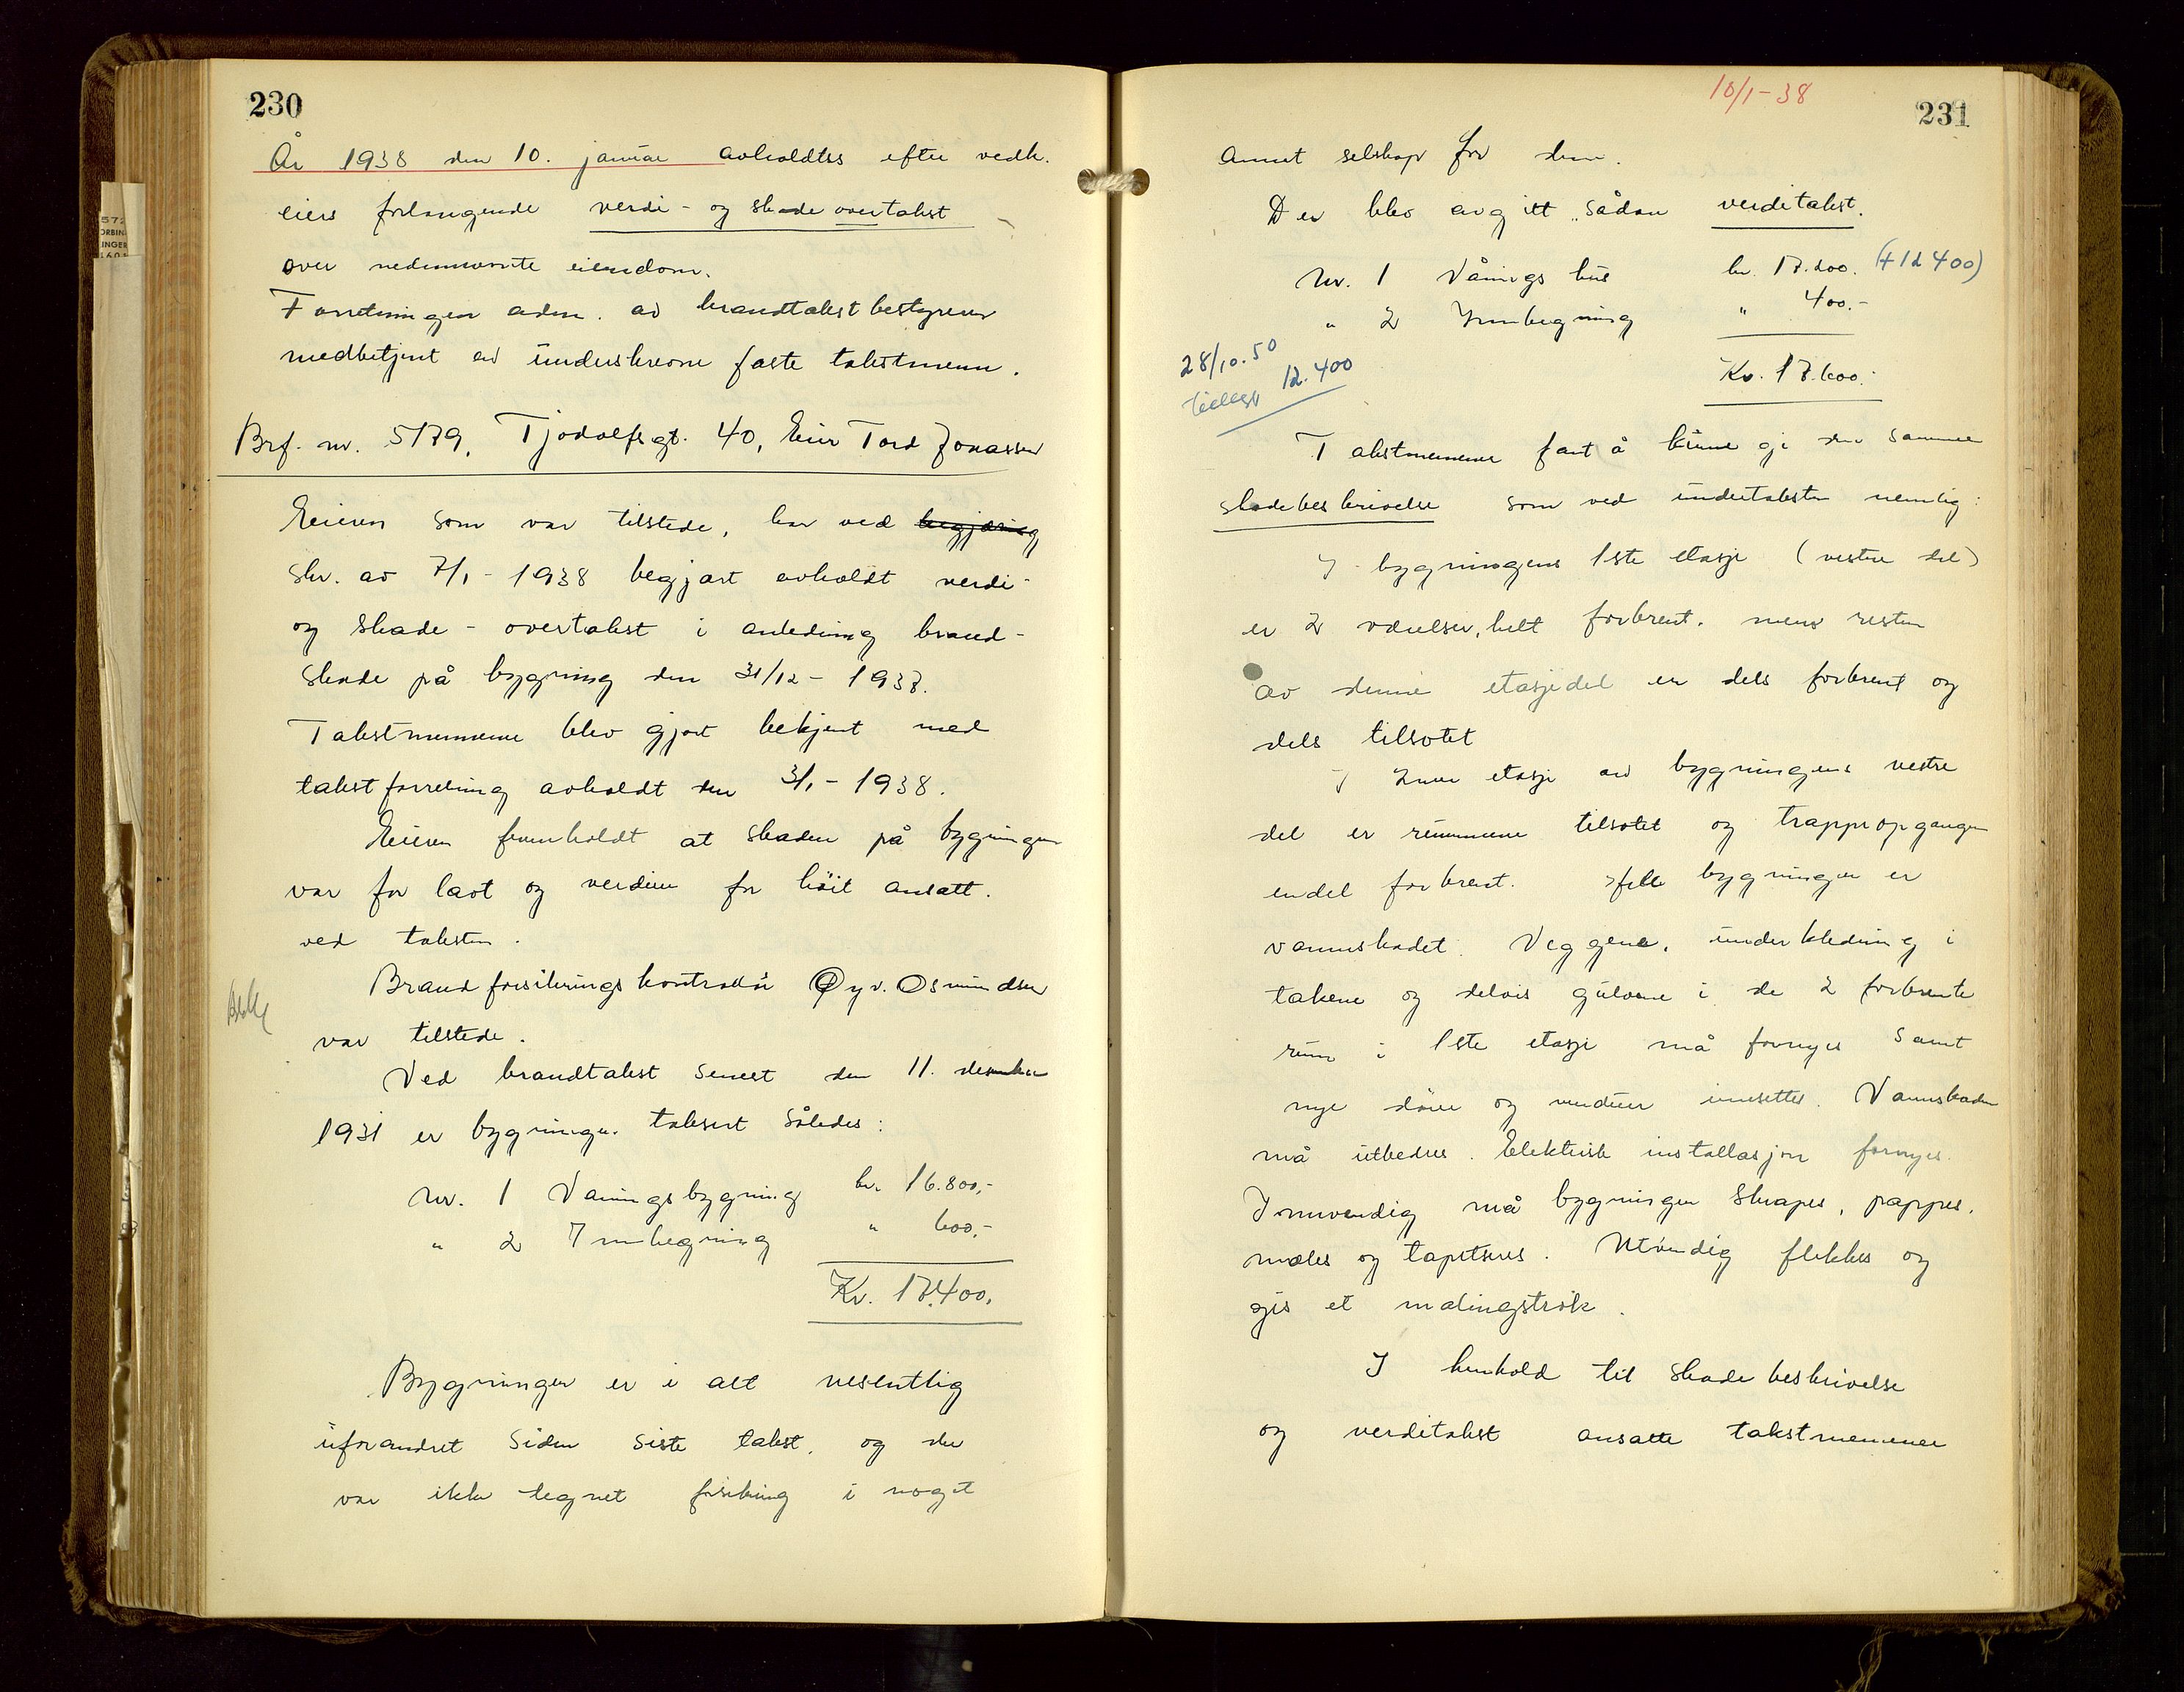 230
År 1938 den 10. januar avholdtes efter vedk.
eiers forlangende verdi- og skade overtakst
over nedennevnte eiendom.
Forretningen adm. av brandtakstbestyreren
medbetjent av underskrevne faste takstmenn.
Brf. nr. 5179, Tjodolfsgt. 40, Eier Tord Jonassen
Eieren som var tilstede, har ved begjæring
skr. av 7/1-1938 begjært avholdt verdi-
og skade-overtakst i anledning brand-
skade på bygning den 31/12-1937.
Takstmennene blev gjort bekjent med
takstforretning avholdt den 3/1-1938.
Eieren fremholdt at skaden på bygningen
var for lavt og verdien for höit ansatt.
ved taksten.
Brandforsikringskontrollör Øyv. Osmundsen
var tilstede.
Ved brandtakst senest den 11. desember
1931 er bygningen taksert således:
Nr. 1 Våningsbygning kr. 16.800,-
" 2 Innhegning " 600,-
Kr. 17.400,
Bygningen er i alt vesentlig
uforandret siden siste takst, og der
var ikke tegnet forsikring i noget
10/1-38
231
annet selskap for dem.
Der blev avgitt sådan verditakst.
Nr. 1 Vånings hus kr. 17.200. (+12400)
" 2 Innhegning " 400.-
Kr. 17.600.-
28/10.50
tillegg 12.400
Takstmennene fant å kunne gi den samme
skadebeskrivelse som ved undertaksten nemlig:
I bygningens 1ste etasje (vestre del)
er 2 værelser, helt forbrent. mens resten
av denne etasjedel er dels forbrent og
dels tilsotet
I 2nen etasje av bygningens vestre
del er rummene tilsotet og trappeopgangen
endel forbrent. Hele bygningen er
vannskadet. Veggene, underkledning i
takene og delvis gulvene i de 2 forbrente
rum i 1ste etasje må fornyes samt
nye dörer og vinduer innsettes. Vannskaden
må utbedres. Elektrisk installasjon fornyes.
Innvendig må bygningen skrapes, pappes,
males og tapetseres. Utvendig flekkes og
gis et malingströk.
I henhold til skadebeskrivelse
og verditakst ansatte takstmennene